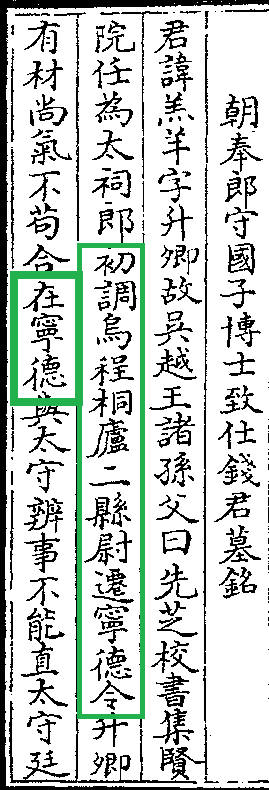 朝奉郎守國子博士致仕錢君墓銘
君諱羔羊字升卿故吳越王諸孫父曰先芝校書集賢
院任為太祠郎初調烏程桐廬二縣尉遷寧德令升卿
有材尚氣不苟合在寧德與太守辨事不能直太守廷